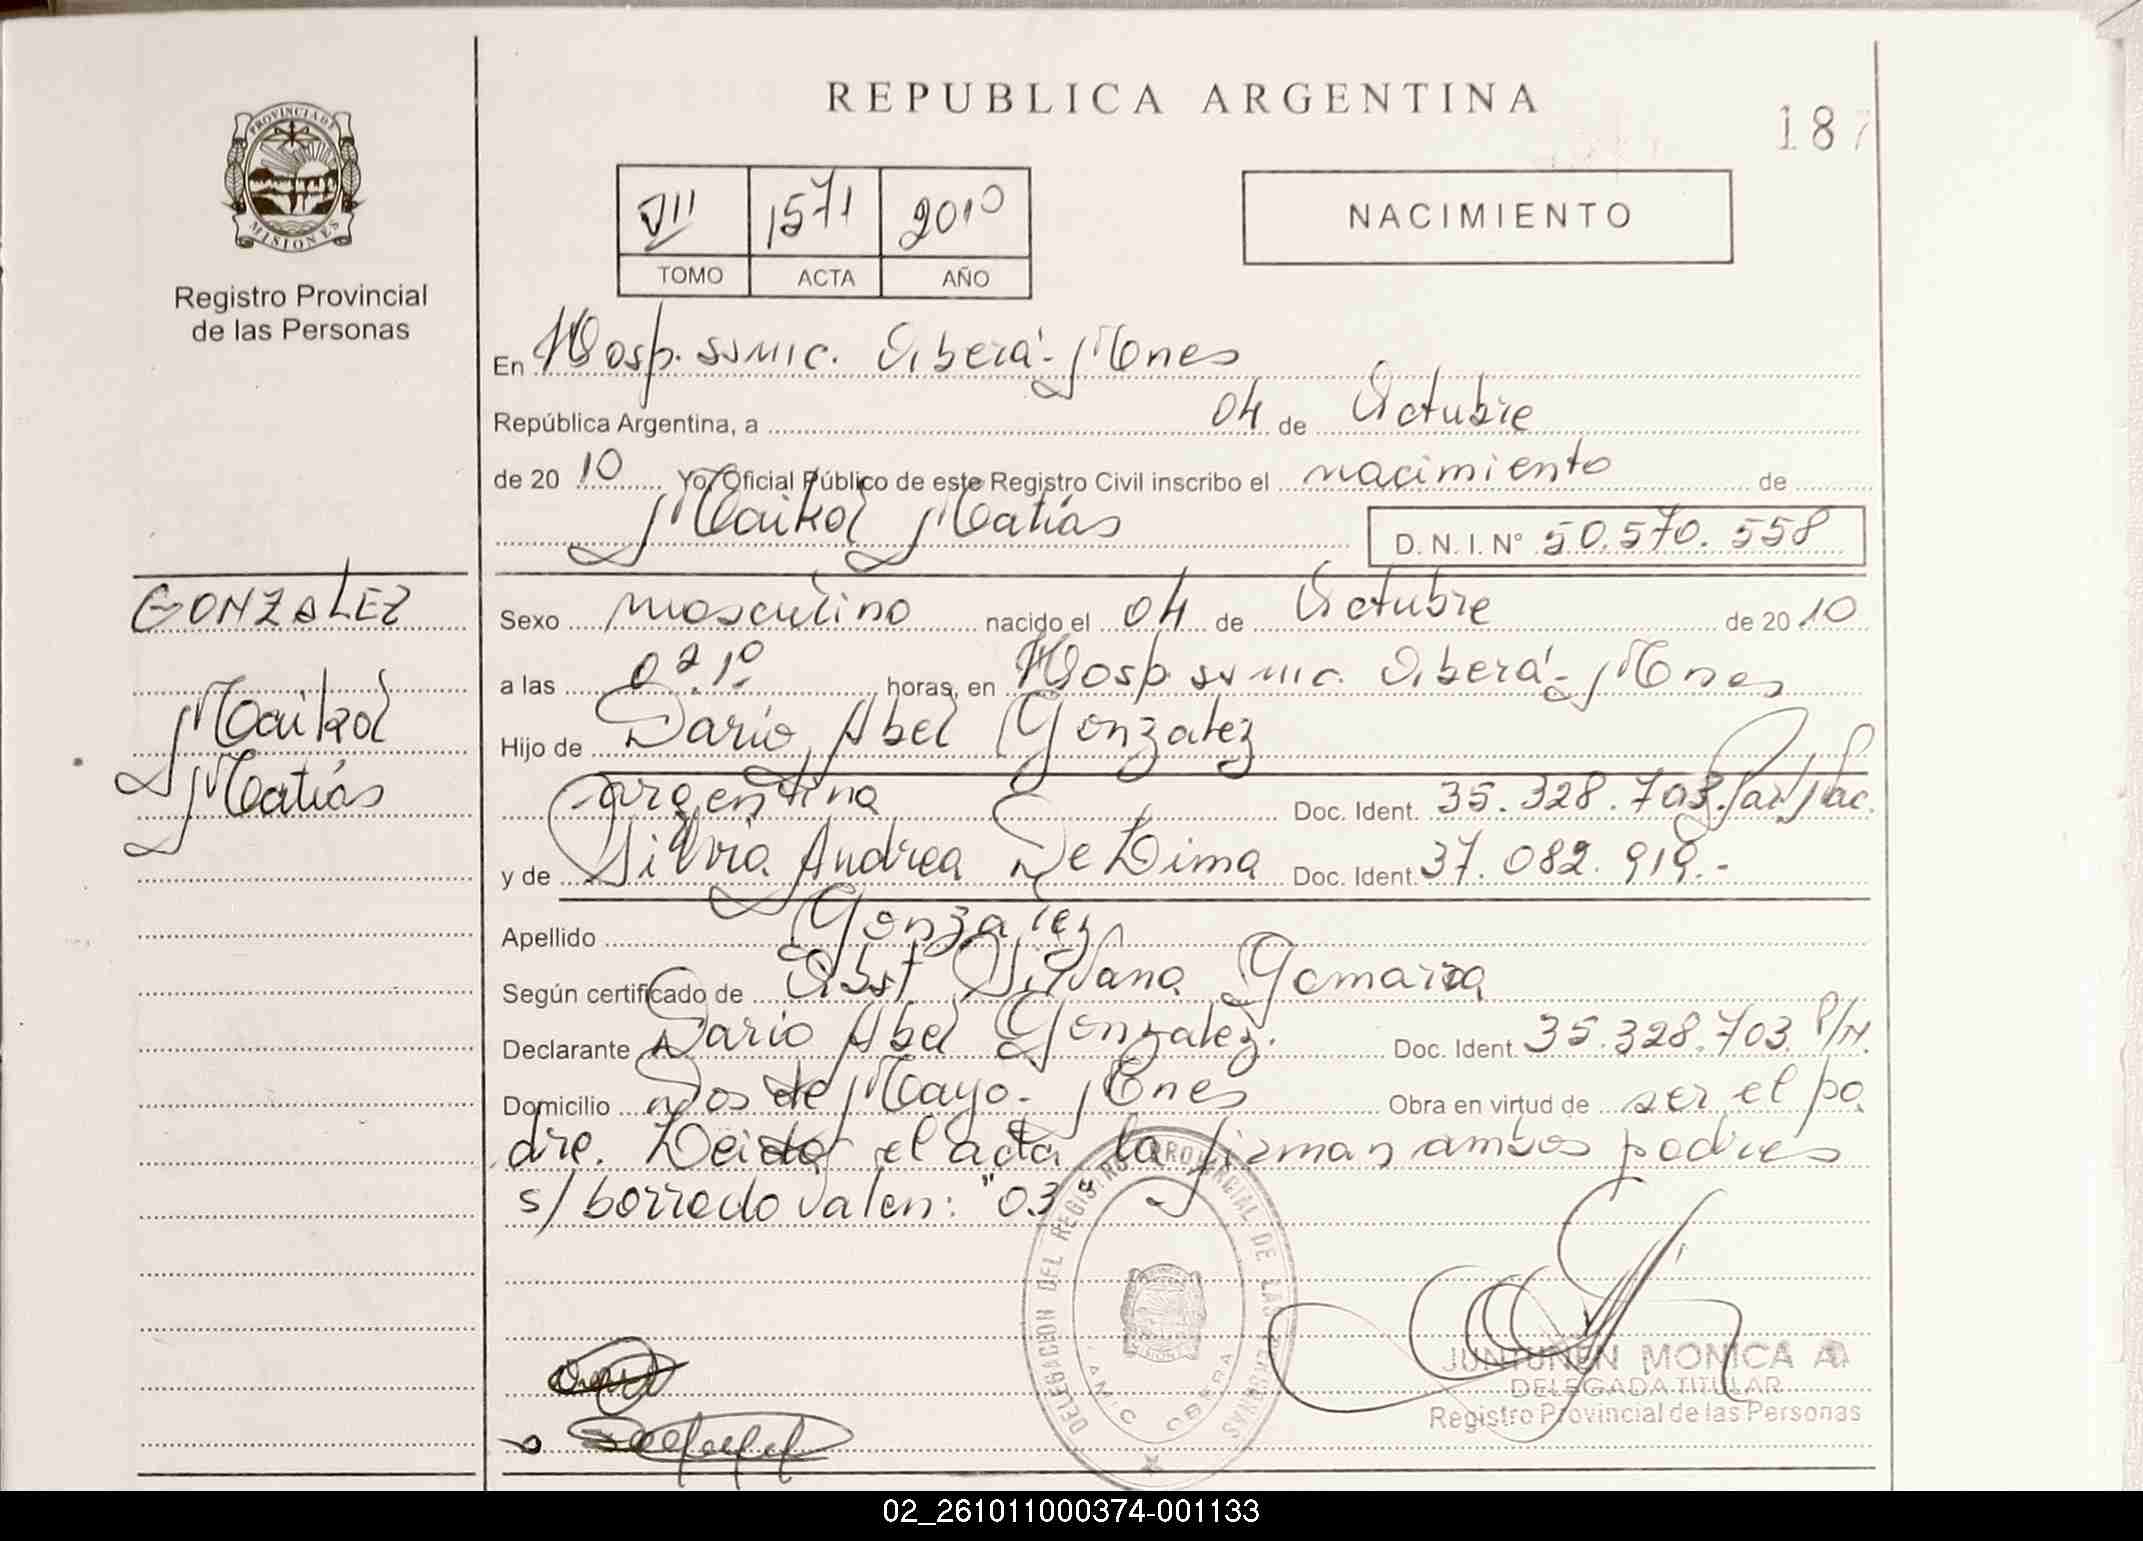 REPUBLICA ARGENTINA
187
PROVINCIA DE
MISIONES
Registro Provincial
de las Personas
VII 1571 2010
TOMO ACTA AÑO
NACIMIENTO
En Hosp. SSMIC. Oberá - Mnes
República Argentina, a 04 de Octubre
de 20 10 Yo, Oficial Público de este Registro Civil inscribo el nacimiento de
Maikol Matías D. N. I. N° 50.570.558
GONZALEZ
Maikol
Matías
Sexo masculino nacido el 04 de Octubre de 20 10
a las 02 10 horas, en Hosp. SSMIC. Oberá - Mnes
Hijo de Darío Abel Gonzalez
Argentina Doc. Ident. 35.328.703.
y de Silvia Andrea De Lima Doc. Ident. 37.082.919.-
Apellido Gonzalez
Según certificado de Obst Silvana Gamarra
Declarante Dario Abel Gonzalez. Doc. Ident. 35.328.703 P/N.
Domicilio Dos de Mayo - Mnes Obra en virtud de ser el pa
dre. Leida el acta la firman ambos padres
s/ borrado valen: "03"
DELEGACION DEL REGISTRO PROVINCIAL DE LAS PERSONAS
OBERA
JUNTUNEN MONICA A.
DELEGADA TITULAR
Registro Provincial de las Personas
02_261011000374-001133